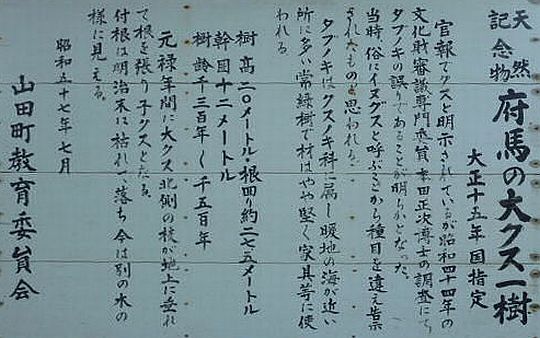 天然
記念物
府馬の大クス一樹
大正十五年国指定
官報でクスと明示されているが昭和四十四年の
文化財審議専門委員本田正次博士の調査にて
タブノキの誤りであることが明らかとなった。
当時俗にイヌグスと呼ぶことから種目を違え告示
されたものと思われる。
タブノキはクスノキ科に属し暖地の海が近い
所に多い常緑樹で材はやや堅く家具等に使
われる。
樹高二〇メートル・根回り約二七・五メートル
幹囲十二メートル
樹齢千三百年〜千五百年
元禄年間に大クス北側の枝が地上に垂れ
て根を張り子グスとなる。
付根は明治末に枯れて落ち今は別の木の
様に見える。
昭和五十七年七月
山田町教育委員会